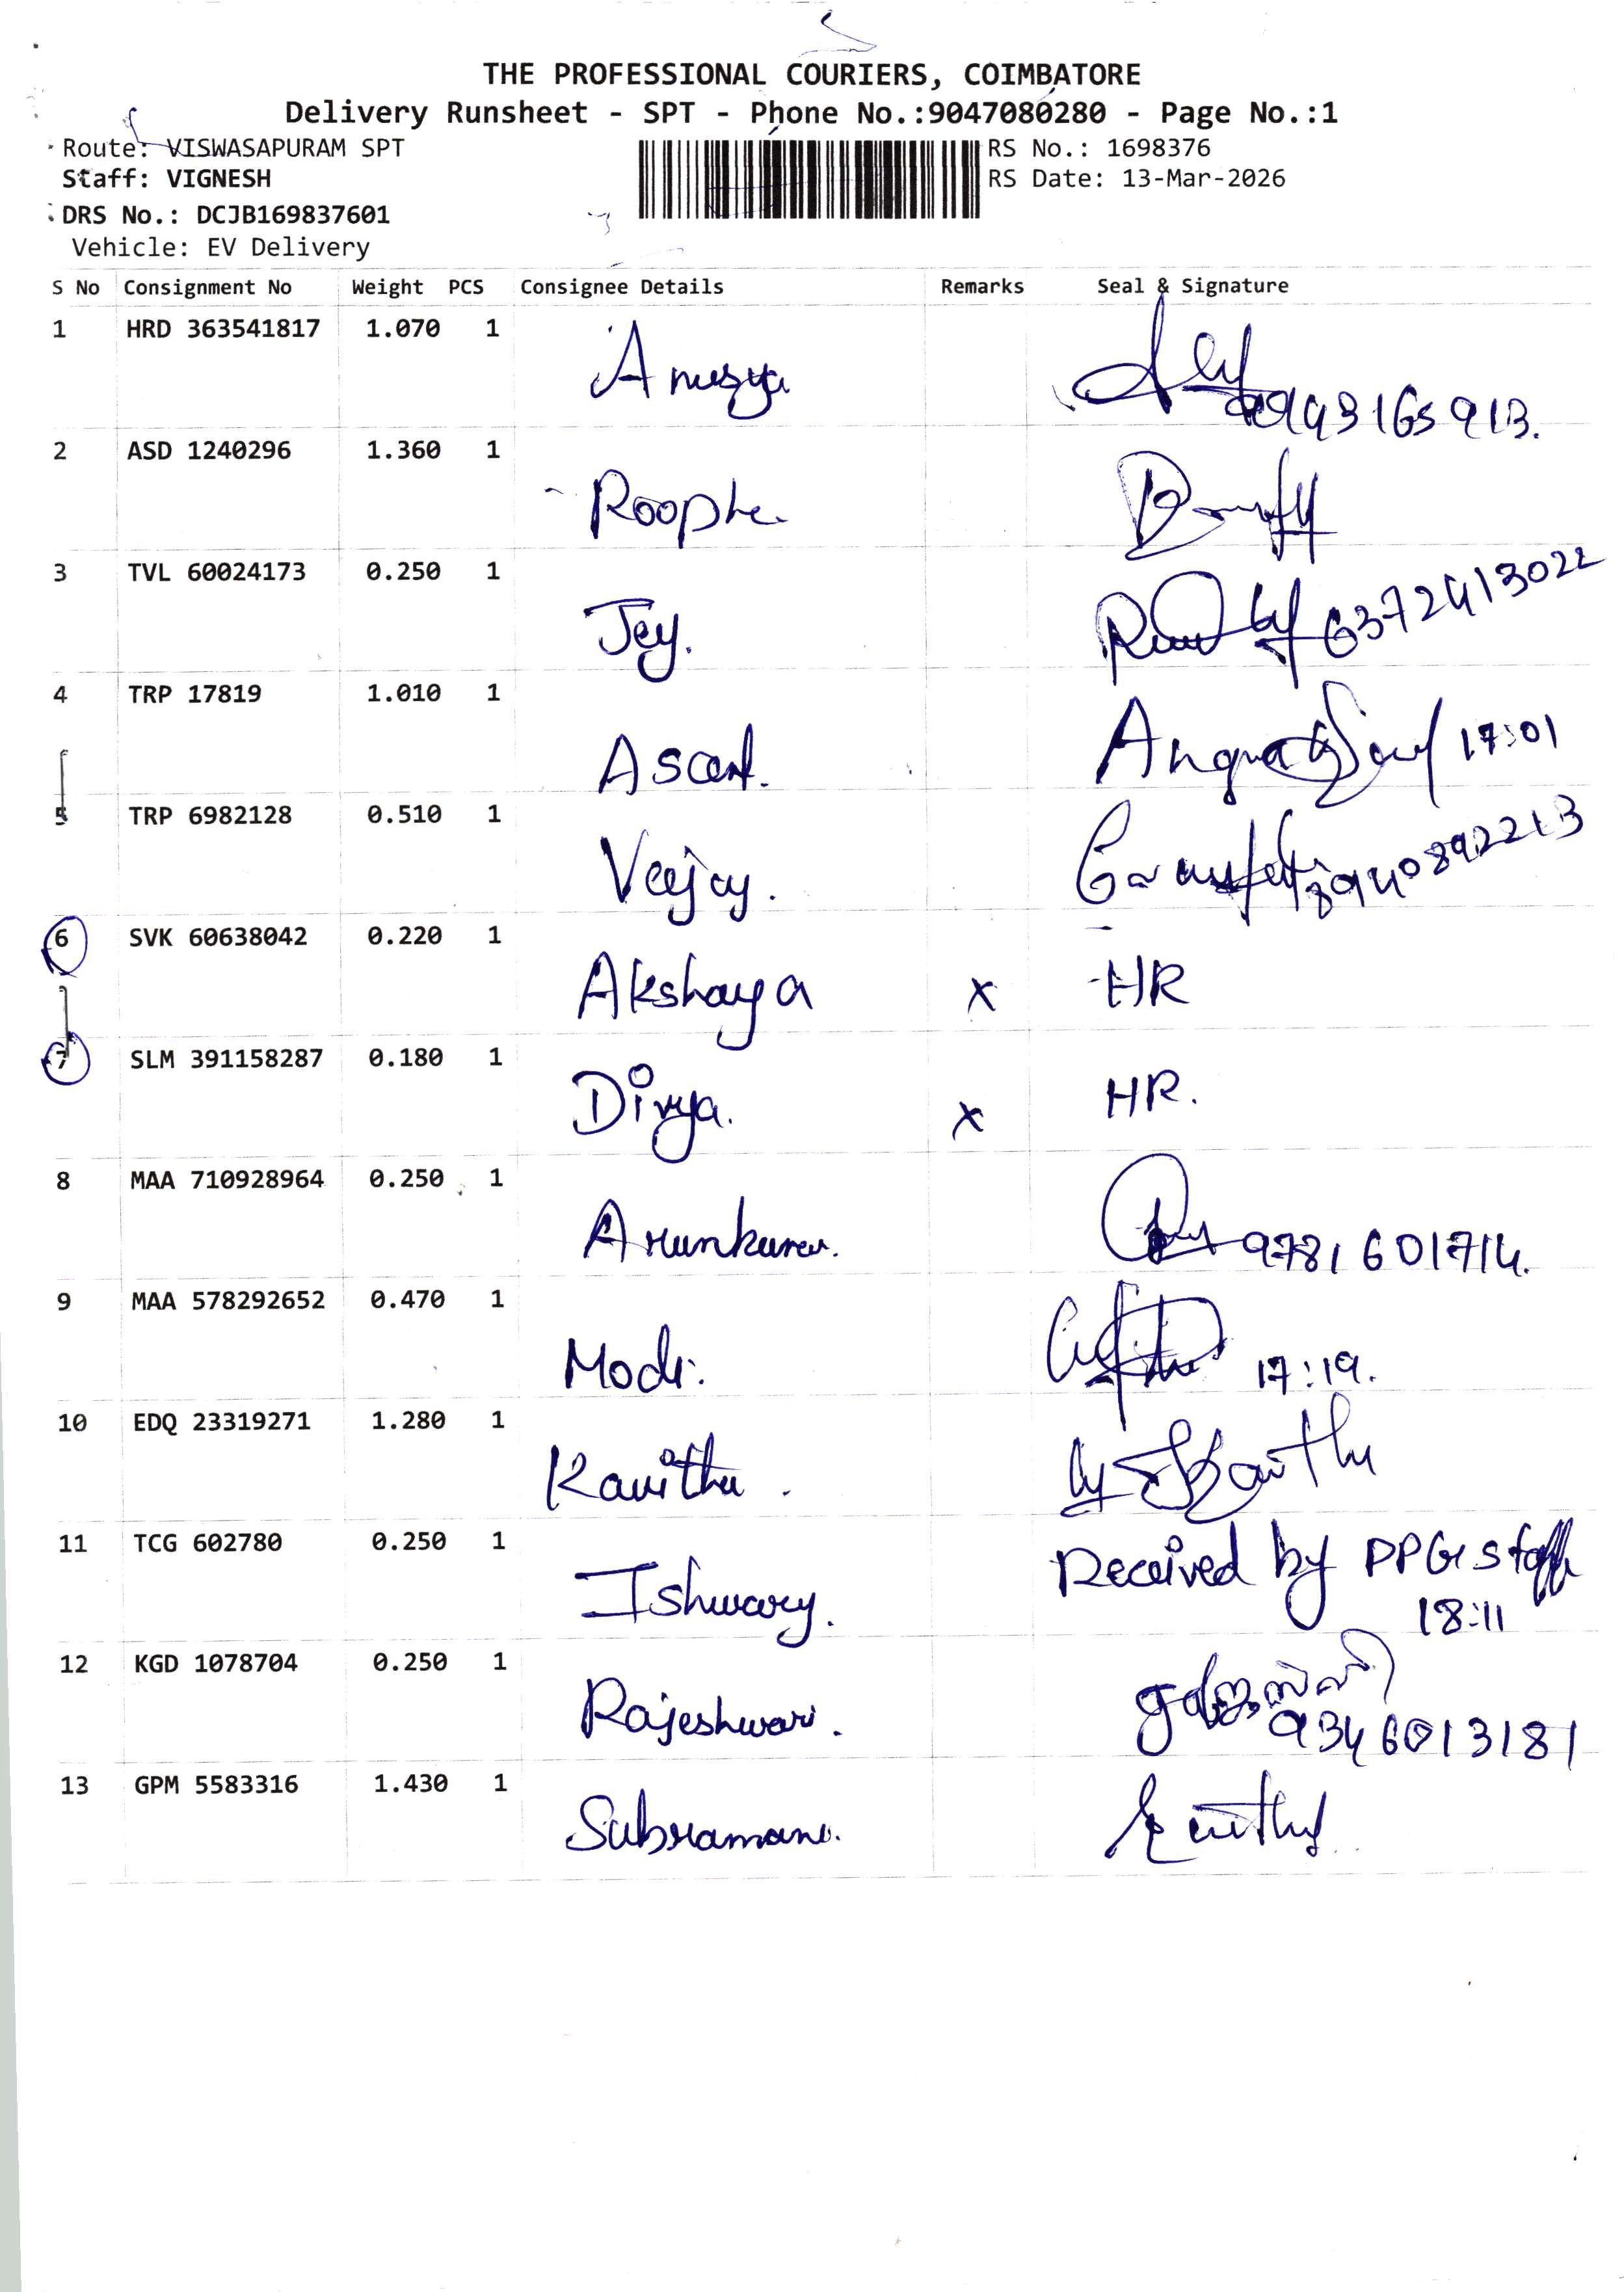 THE PROFESSIONAL COURIERS, COIMBATORE
Delivery Runsheet - SPT - Phone No.:9047080280 - Page No.:1
Route: VISWASAPURAM SPT
RS No.: 1698376
Staff: VIGNESH
RS Date: 13-Mar-2026
DRS No.: DCJB169837601
Vehicle: EV Delivery
S No Consignment No Weight PCS Consignee Details Remarks Seal & Signature
1 HRD 363541817 1.070 1
Anusya
2 ASD 1240296 1.360 1
3 TVL 60024173 0.250 1
Jey. 6372413022
4 TRP 17819 1.010 1
17:01
5 TRP 6982128 0.510 1
6 SVK 60638042 0.220 1
Akshaya x HR
7 SLM 391158287 0.180 1
Divya. x HR.
8 MAA 710928964 0.250 1
Arunkumar. 9781601714.
9 MAA 578292652 0.470 1
Modi. 17:19.
10 EDQ 23319271 1.280 1
Kavitha.
11 TCG 602780 0.250 1
Ishwary. Received by PPG staff
18:11
12 KGD 1078704 0.250 1
Rajeshwari. 9346013181
13 GPM 5583316 1.430 1
Subramani.